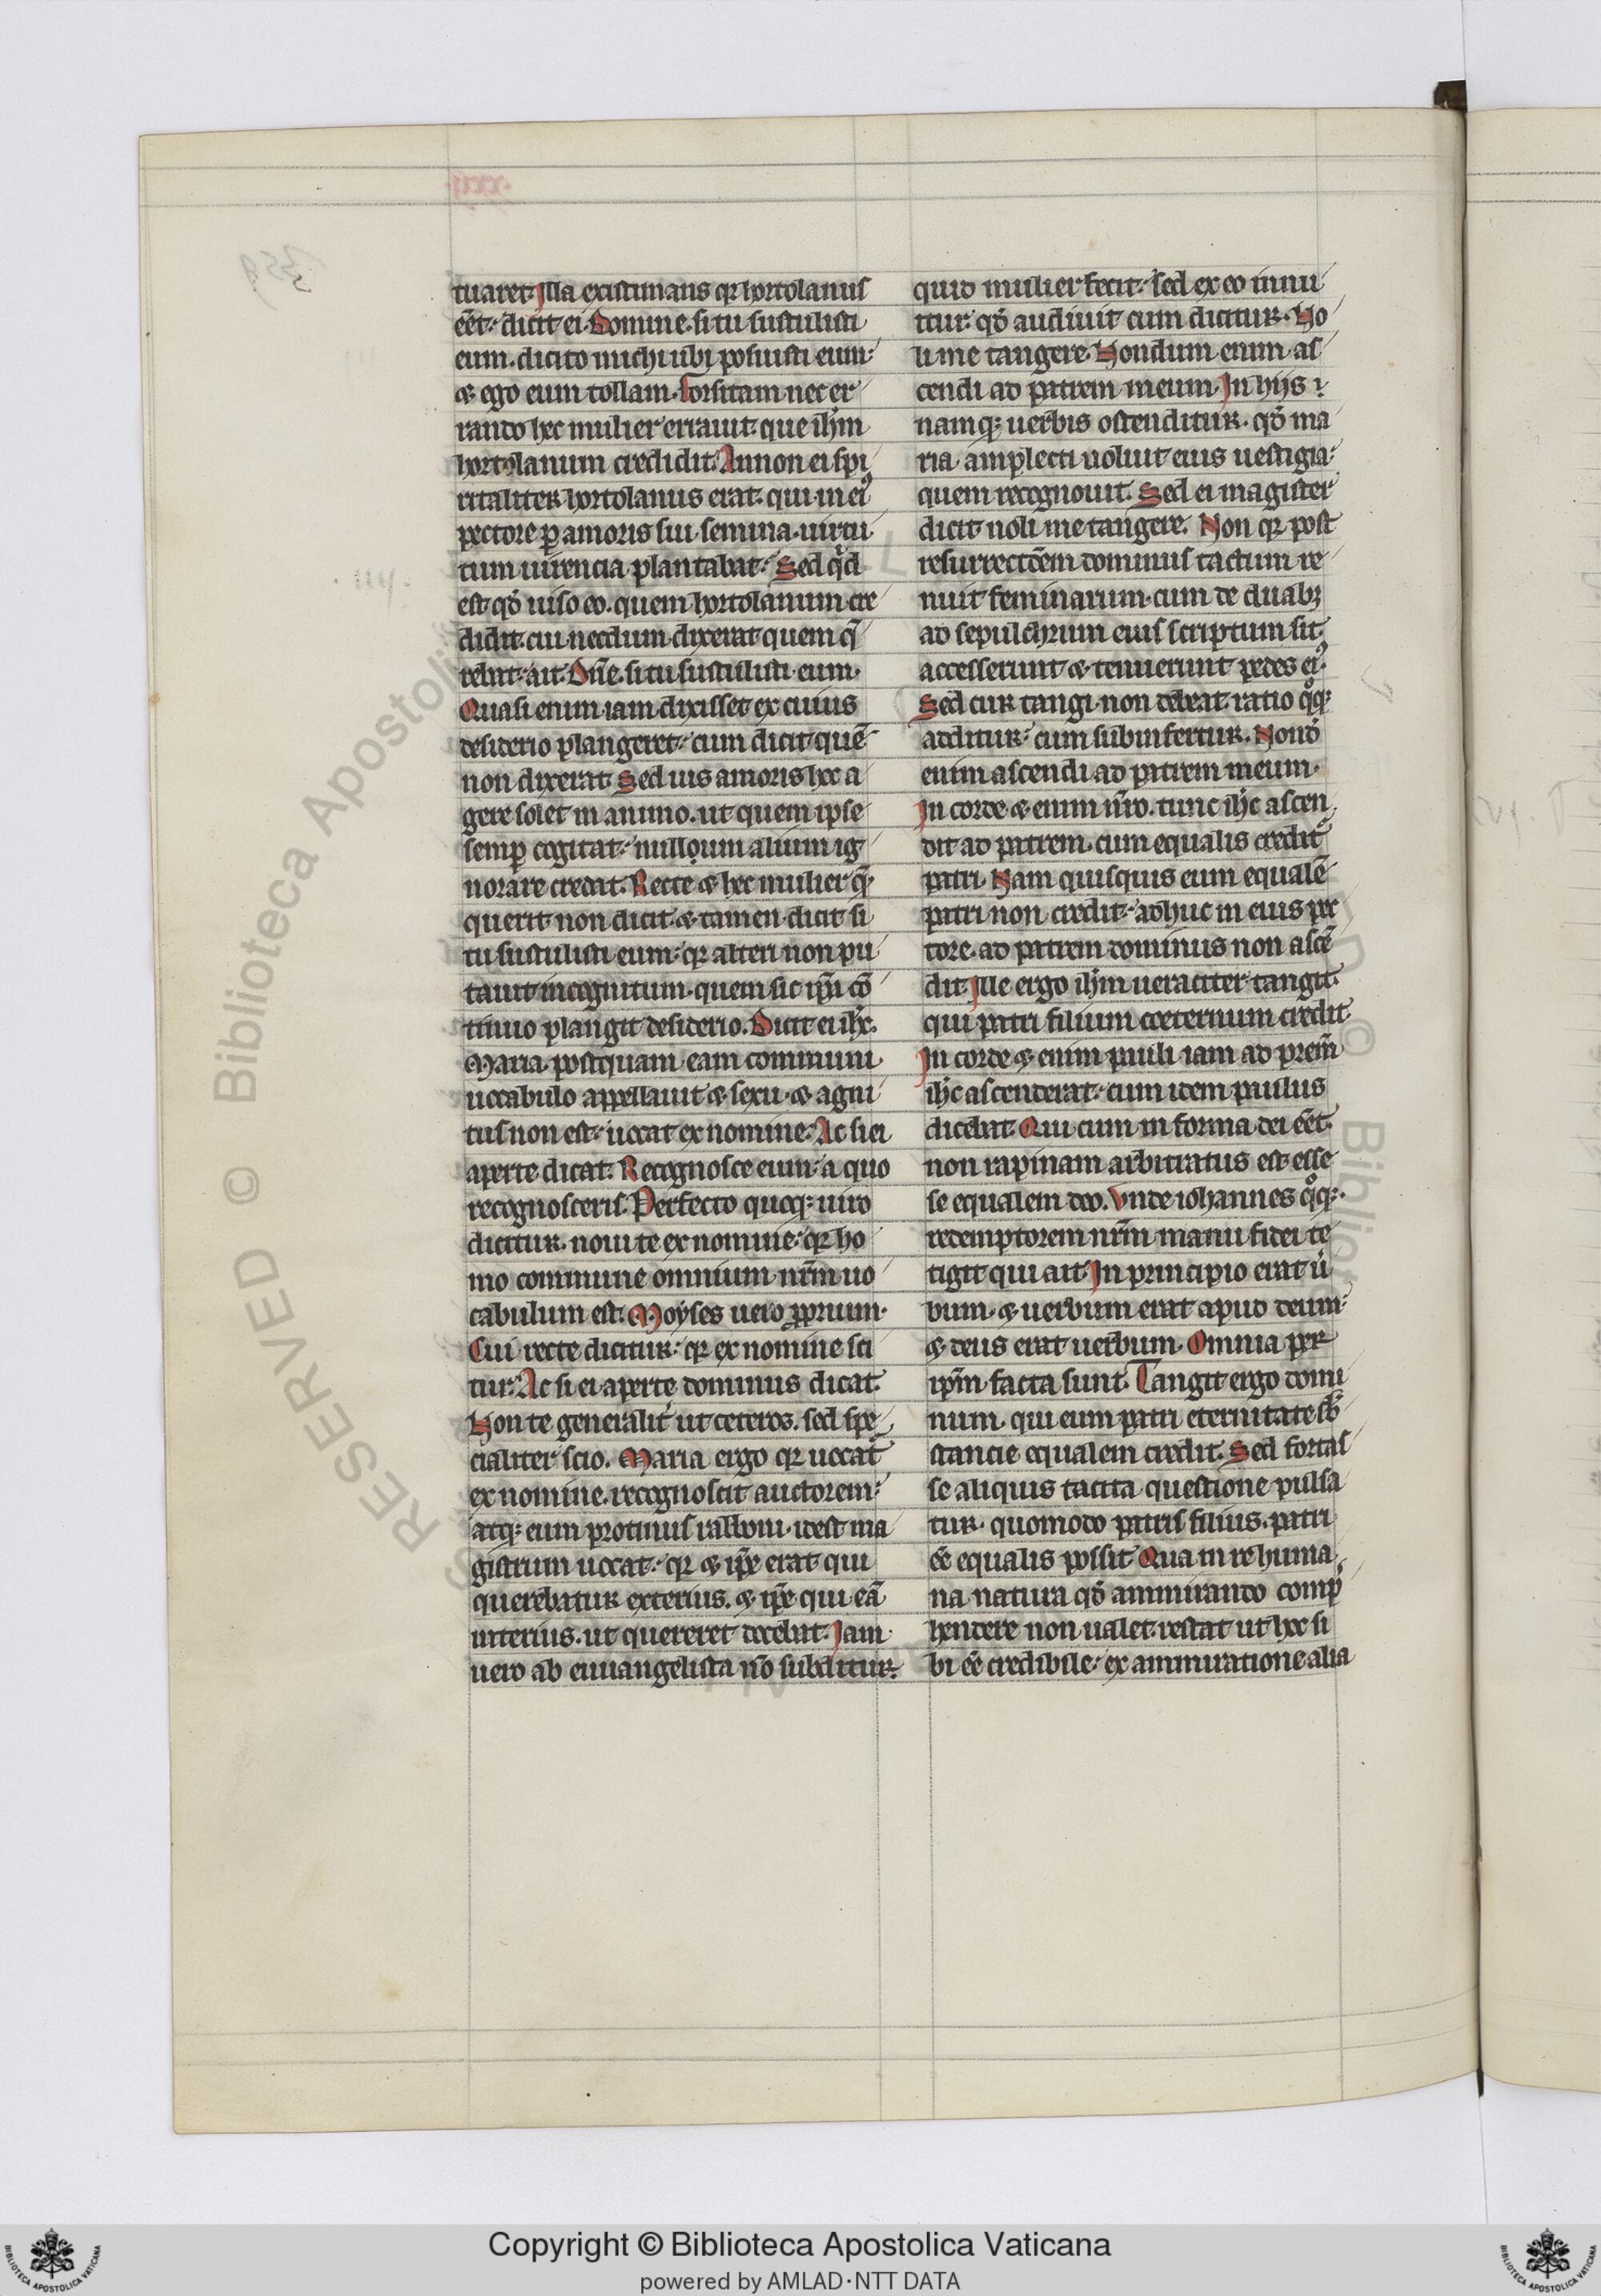 tuaret. Illa existimans qr hortolanus
eēt. dicit ei. Domine. si tu sustulisti
eum. dicito michi ubi posuisti eum.
& ego eum tollam. Forsitam nec er
rando hec mulier errauit. que ihm̄
hortolanum credidit. An non ei spi
ritaliter hortolanus erat. qui in eiꝰ
pectore ꝑ amoris sui semina. uirtu
tum uirencia plantabat. Sed qͥd
est qđ uiso eo. quem hortolanum cre
didit. cui necdum dixerat quem q̄
rebat. ait. Dn̄e. si tu sustulisti eum.
Quasi enim iam dixisset ex cuius
desiderio plangeret. cum dicit quē
non dixerat. Sed uis amoris hoc a
gere solet in animo. ut quem ipse
semꝑ cogitat. nullọum alium ig
norare credat. Recte & hec mulier q̄
querit non dicit & tamen dicit si
tu sustulisti eum. qr alteri non pu
tauit incognitum. quem sic ip̄a cō
tinuo plangit desiderio. Dicit ei ihc̄.
Maria. postquam eam communi
uocabulo appellauit & sexu. & agni
tus non est. uocat ex nomine. Ac si ei
aperte dicat. Recognosce eum. a quo
recognosceris. Perfecto quoqꝫ uiro
dicitur. noui te ex nomine. qr ho
mo commune omnium nr̄m uo
cabulum est. Moyses uero ꝓprium.
Cui recte dicitur. qr ex nomine sci
tur. Ac si ei aperte dominus dicat.
Non te generalit̓ ut ceteros. sed spe
cialiter scio. Maria ergo qr uocat᷑
ex nomine. recognoscit auctorem.
atqꝫ eum protinus rabboni. idest ma
gistrum uocat. qr & ip̄e erat qui
querebatur exterius. & ip̄e qui eā
interius. ut quereret docebat. Iam
uero ab euuangelista nō subditur.
quid mulier fecit. sed ex eo innu
itur. qđ audiuit cum dicitur. No
li me tangere. Nondum enim as
cendi ad patrem meum. In hijs
namqꝫ uerbis ostenditur. qđ ma
ria amplecti uoluit eius uestigia.
quem recognouit. Sed ei magister
dicit noli me tangere. Non qr post
resurrectōem dominus tactum re
nuit feminarum. cum de duabꝫ
ad sepulchrum eius scriptum sit
accesserunt & tenuerunt pedes eiꝰ.
Sed cur tangi non debeat. ratio qͦqꝫ
additur. cum subinfertur. Nondū
enim ascendi ad patrem meum.
In corde & enim nr̄o. tunc ihc̄ ascen
dit ad patrem. cum equalis credit᷑
patri. Nam quisquis eum equalē
patri non credit. adhuc in eius pec
tore. ad patrem dominus non ascē
dit. Ille ergo ihm̄ ueraciter tangit.
qui patri filium coeternum credit.
In corde & enim pauli iam ad prem̄
ihc̄ ascenderat. cum idem paulus
dicebat. Qui cum in forma dei eēt.
non rapinam arbitratus est esse
se equalem deo. Vnde iohannes qͦqꝫ.
redemptorem nr̄m manu fidei te
tigit qui ait. In principio erat u̓
bum. & uerbum erat apud deum.
& deus erat uerbum. Omnia per
ip̄m facta sunt. Tangit ergo domi
num. qui eum patri eternitate sb̄
stancie equalem credit. Sed fortas
se aliquis tacita questione pulsa
tur. quomodo patris filius. patri
eē equalis possit. Qua in re huma
na natura qđ ammirando comp̄
hendere non ualet. restat ut hoc si
bi eē credibile. ex ammiratione alia
Copyright © Biblioteca Apostolica Vaticana
powered by AMLAD·NTT DATA